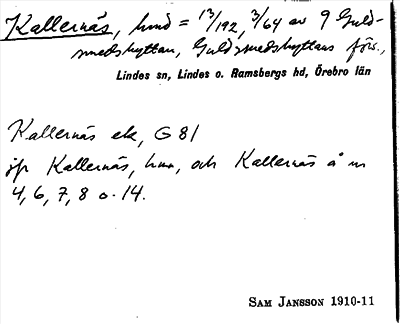 Kallernäs, hmd = 13/192, 3/64 av 9 Guld-
smedshyttan, Guldsmedshyttans förs.,
Lindes sn, Lindes o. Ramsbergs hd, Örebro län
Kallernäs ek, G 81
jfr Kallernäs, hmn, och Kallernäs å n
4, 6, 7, 8 o. 14.
SAM JANSSON 1910-11